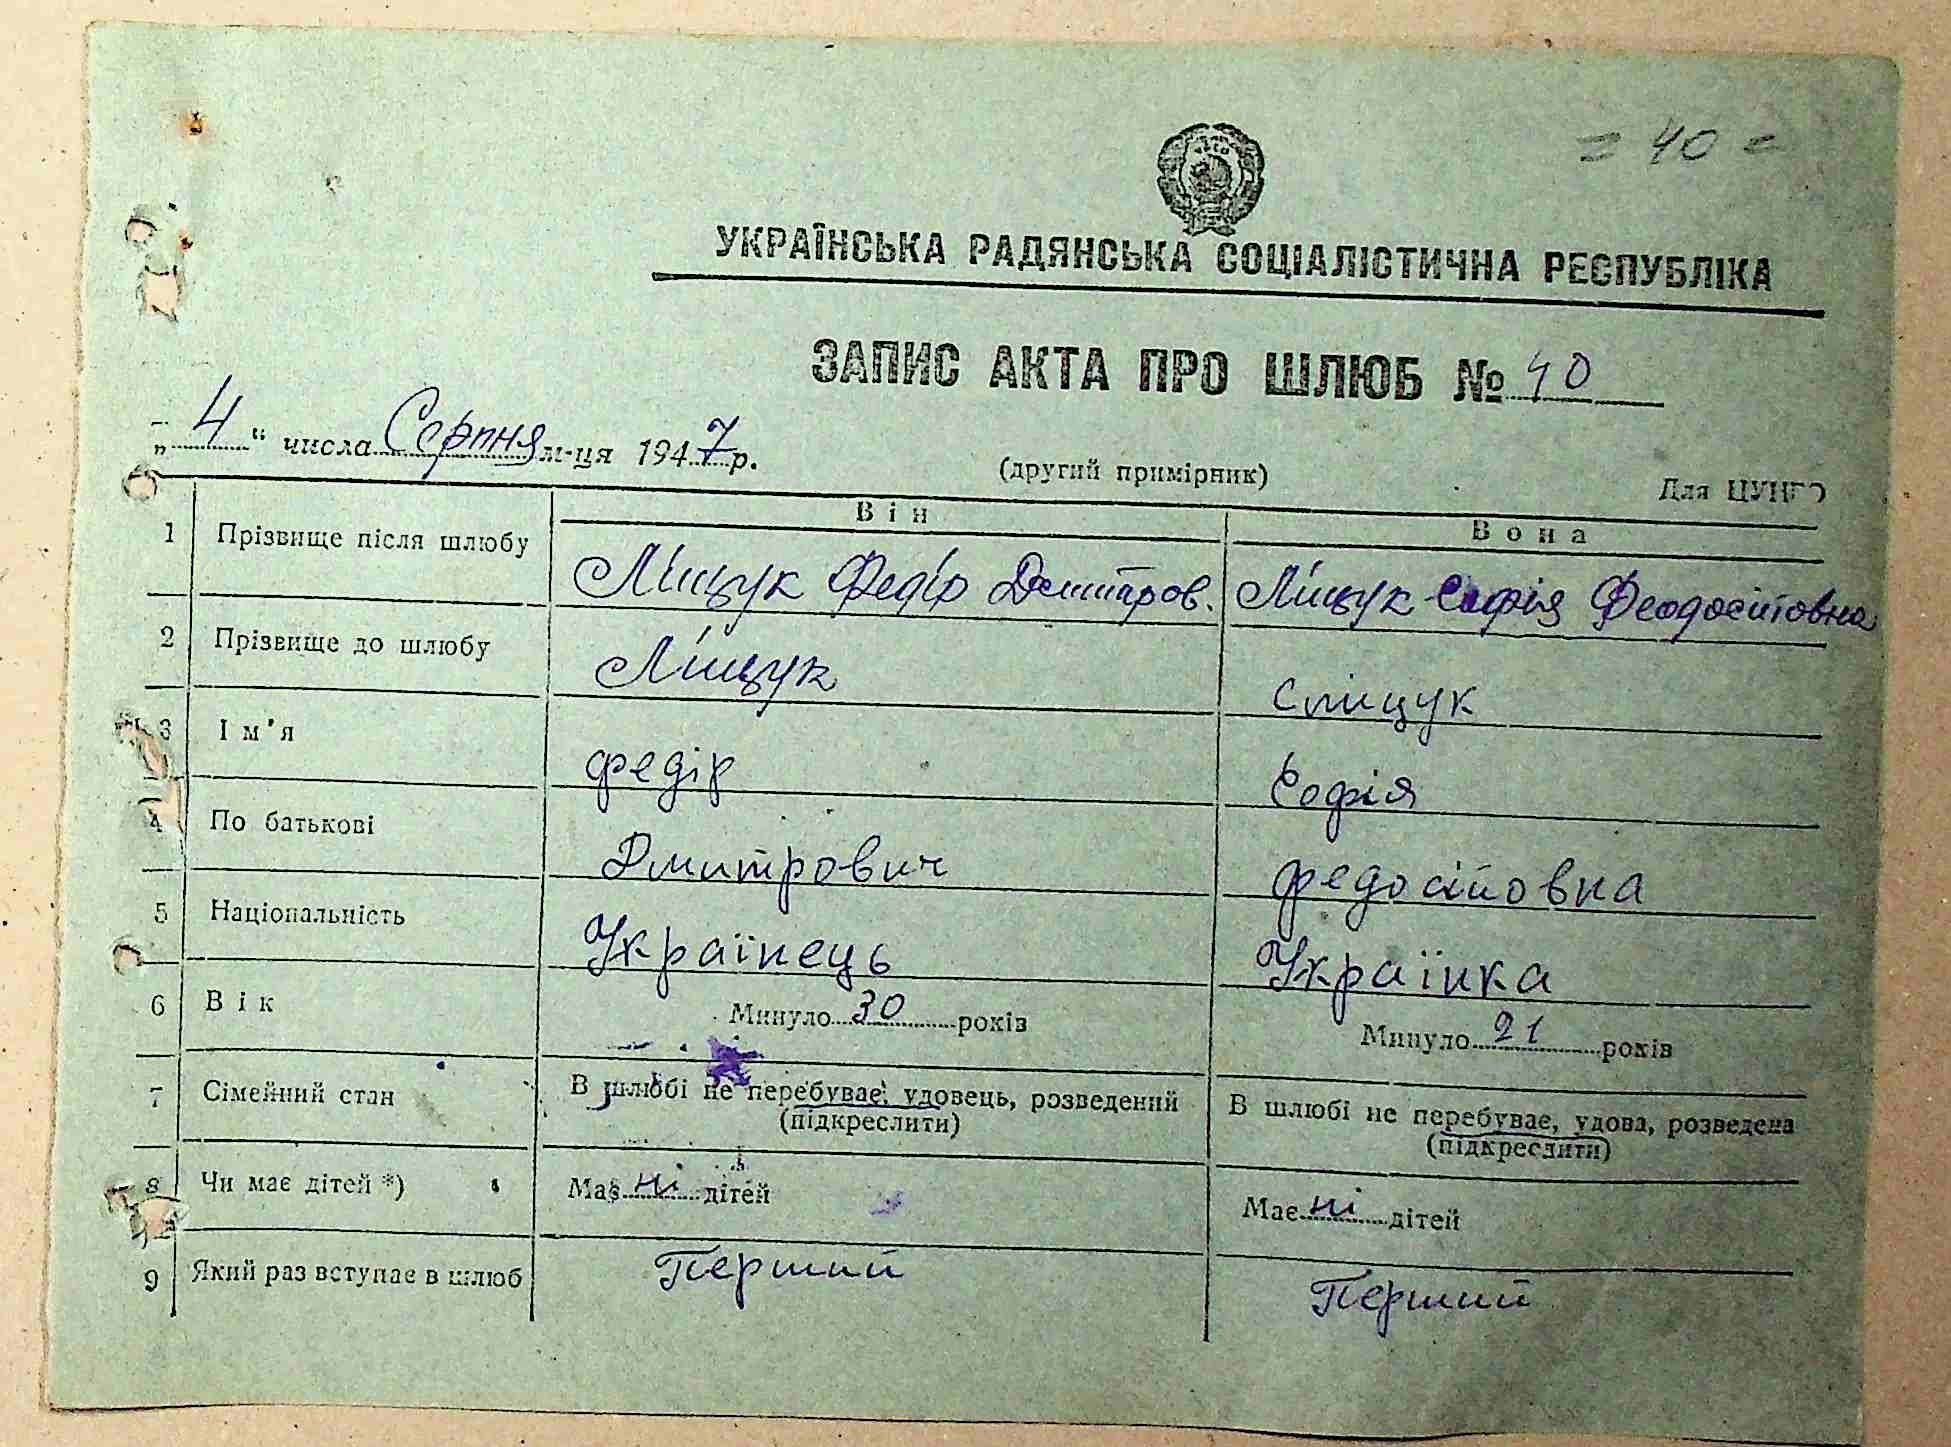 = 40 =
УКРАЇНСЬКА РАДЯНСЬКА СОЦІАЛІСТИЧНА РЕСПУБЛІКА
ЗАПИС АКТА ПРО ШЛЮБ № 40
„4“ числа Серпня м-ця 1947 р.
(другий примірник) Для ЦУНГО
Він Вона
1 Прізвище після шлюбу Ліщук Федір Дмитров. Ліщук Софія Феодосійовна
2 Прізвище до шлюбу Ліщук Сліщук
3 Ім'я федір Софія
4 По батькові Дмитрович федосійовна
5 Національність Українець Українка
6 Вік Минуло 30 років Минуло 21 років
7 Сімейний стан В шлюбі не перебуває, удовець, розведений В шлюбі не перебуває, удова, розведена
(підкреслити) (підкреслити)
8 Чи має дітей *) Має ні дітей Має ні дітей
9 Який раз вступає в шлюб Перший Перший